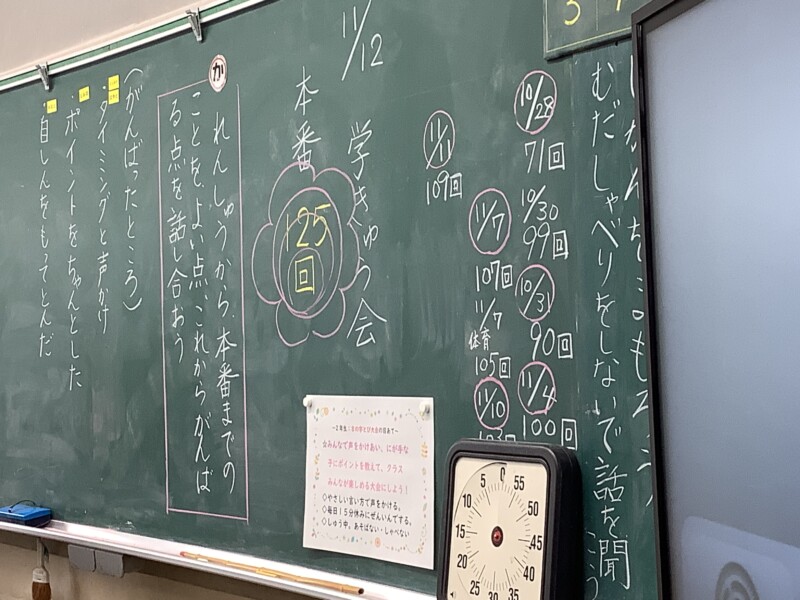 むだしゃべりをしないで話を聞こう
10/28
71回
10/30
99回
10/31
90回
11/4
100回
11/7
107回
11/7
体育
105回
11/10
11/11
109回
11/12
学きゅう会
本番
125回
か
れんしゅうから、本番までの
ことを、よい点、これからがんば
る点を話し合おう
(がんばったところ)
・タイミングと声かけ
・ポイントをちゃんとした
・自しんをもってとんだ
☆みんなで声をかけあい、にが手な
子にポイントを教えて、クラス
みんなが楽しめる大会にしよう!
◇やさしい言い方で声をかける。
◇毎日15分休みにぜんいんでする。
◇しゅう中。あそばない・しゃべない
0
55
50
45
40
35
30
25
20
15
10
5